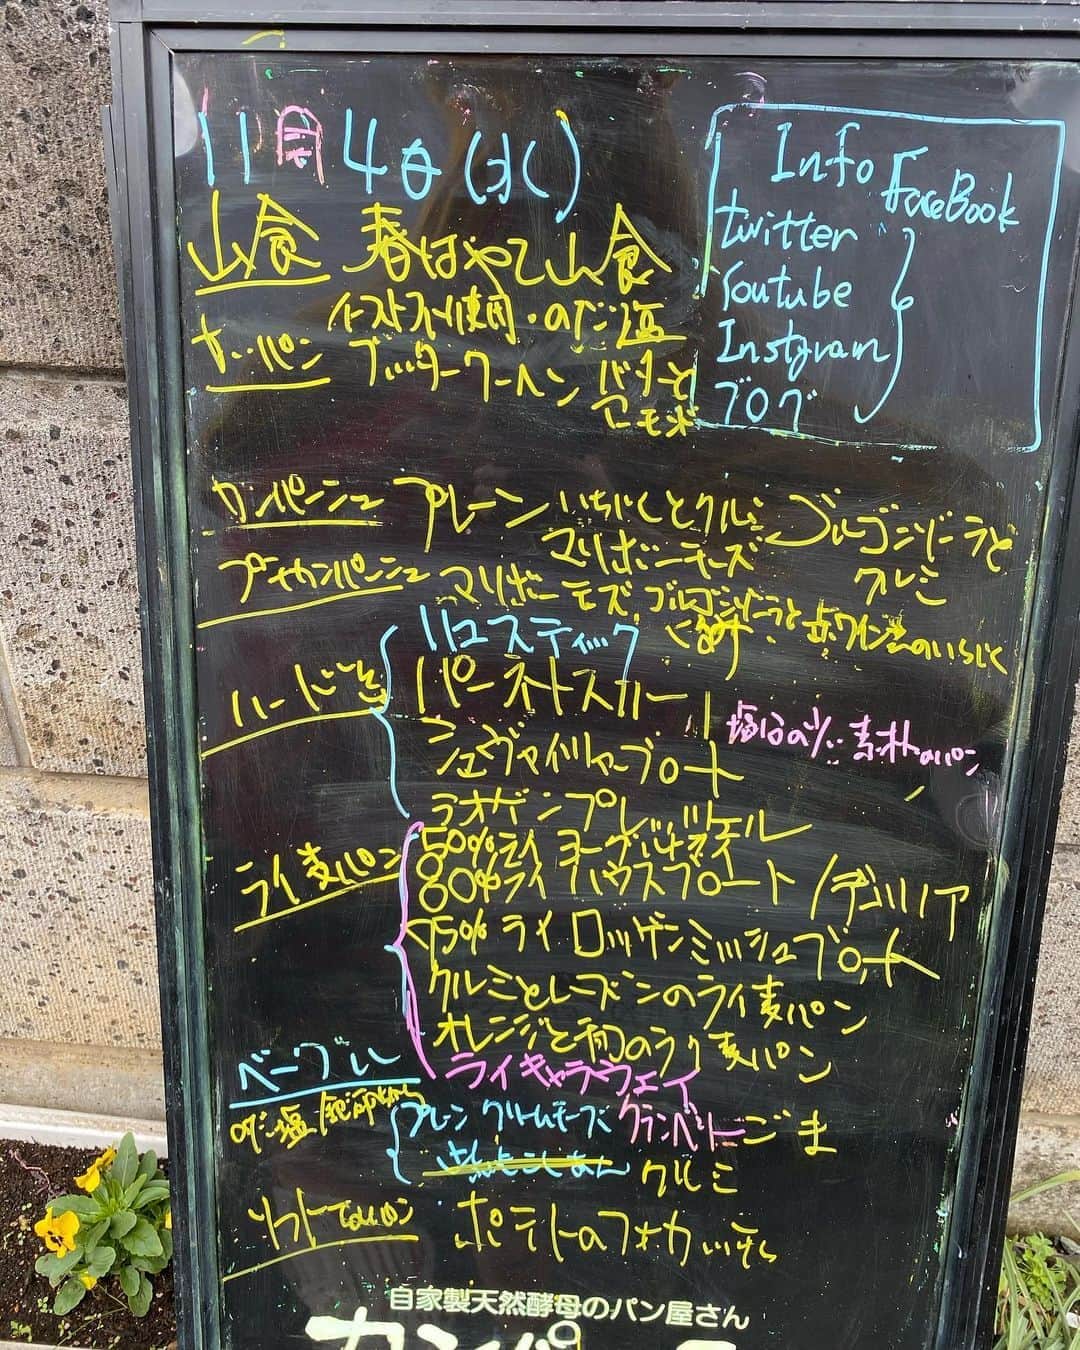 11月4日(水)
Info
FaceBook
twitter
Youtube
Instgram
ブログ
山食 春はやて山食
イーストフリー使用・のだ塩
ナーパン ブッタークーヘン バターと
アーモンド
カンパーニュ プレーン いちじくとクルミ ゴルゴンゾーラと
クルミ
マリボーチーズ
プチカンパーニュ マリボーチーズ ゴルゴンゾーラと
くるみ 赤ワインのいちじく
ハード系
リュスティック
パーネトスカーノ
塩分の少ない素朴のパン
シュヴァイツァーブロート
ラオゲンプレッツェル
ライ麦パン
50%ライ ヨーグルト
60%ライ ハウスブロート
75%ライ ロッゲンミッシュブロート
クルミとレーズンのライ麦パン
オレンジと のライ麦パン
ライキャラウェイ
ベーグル
のだ塩
プレーン クリームチーズ クランベリー ごま
クルミ
ソフトなパン ポテトのフォカッチャ
自家製天然酵母のパン屋さん